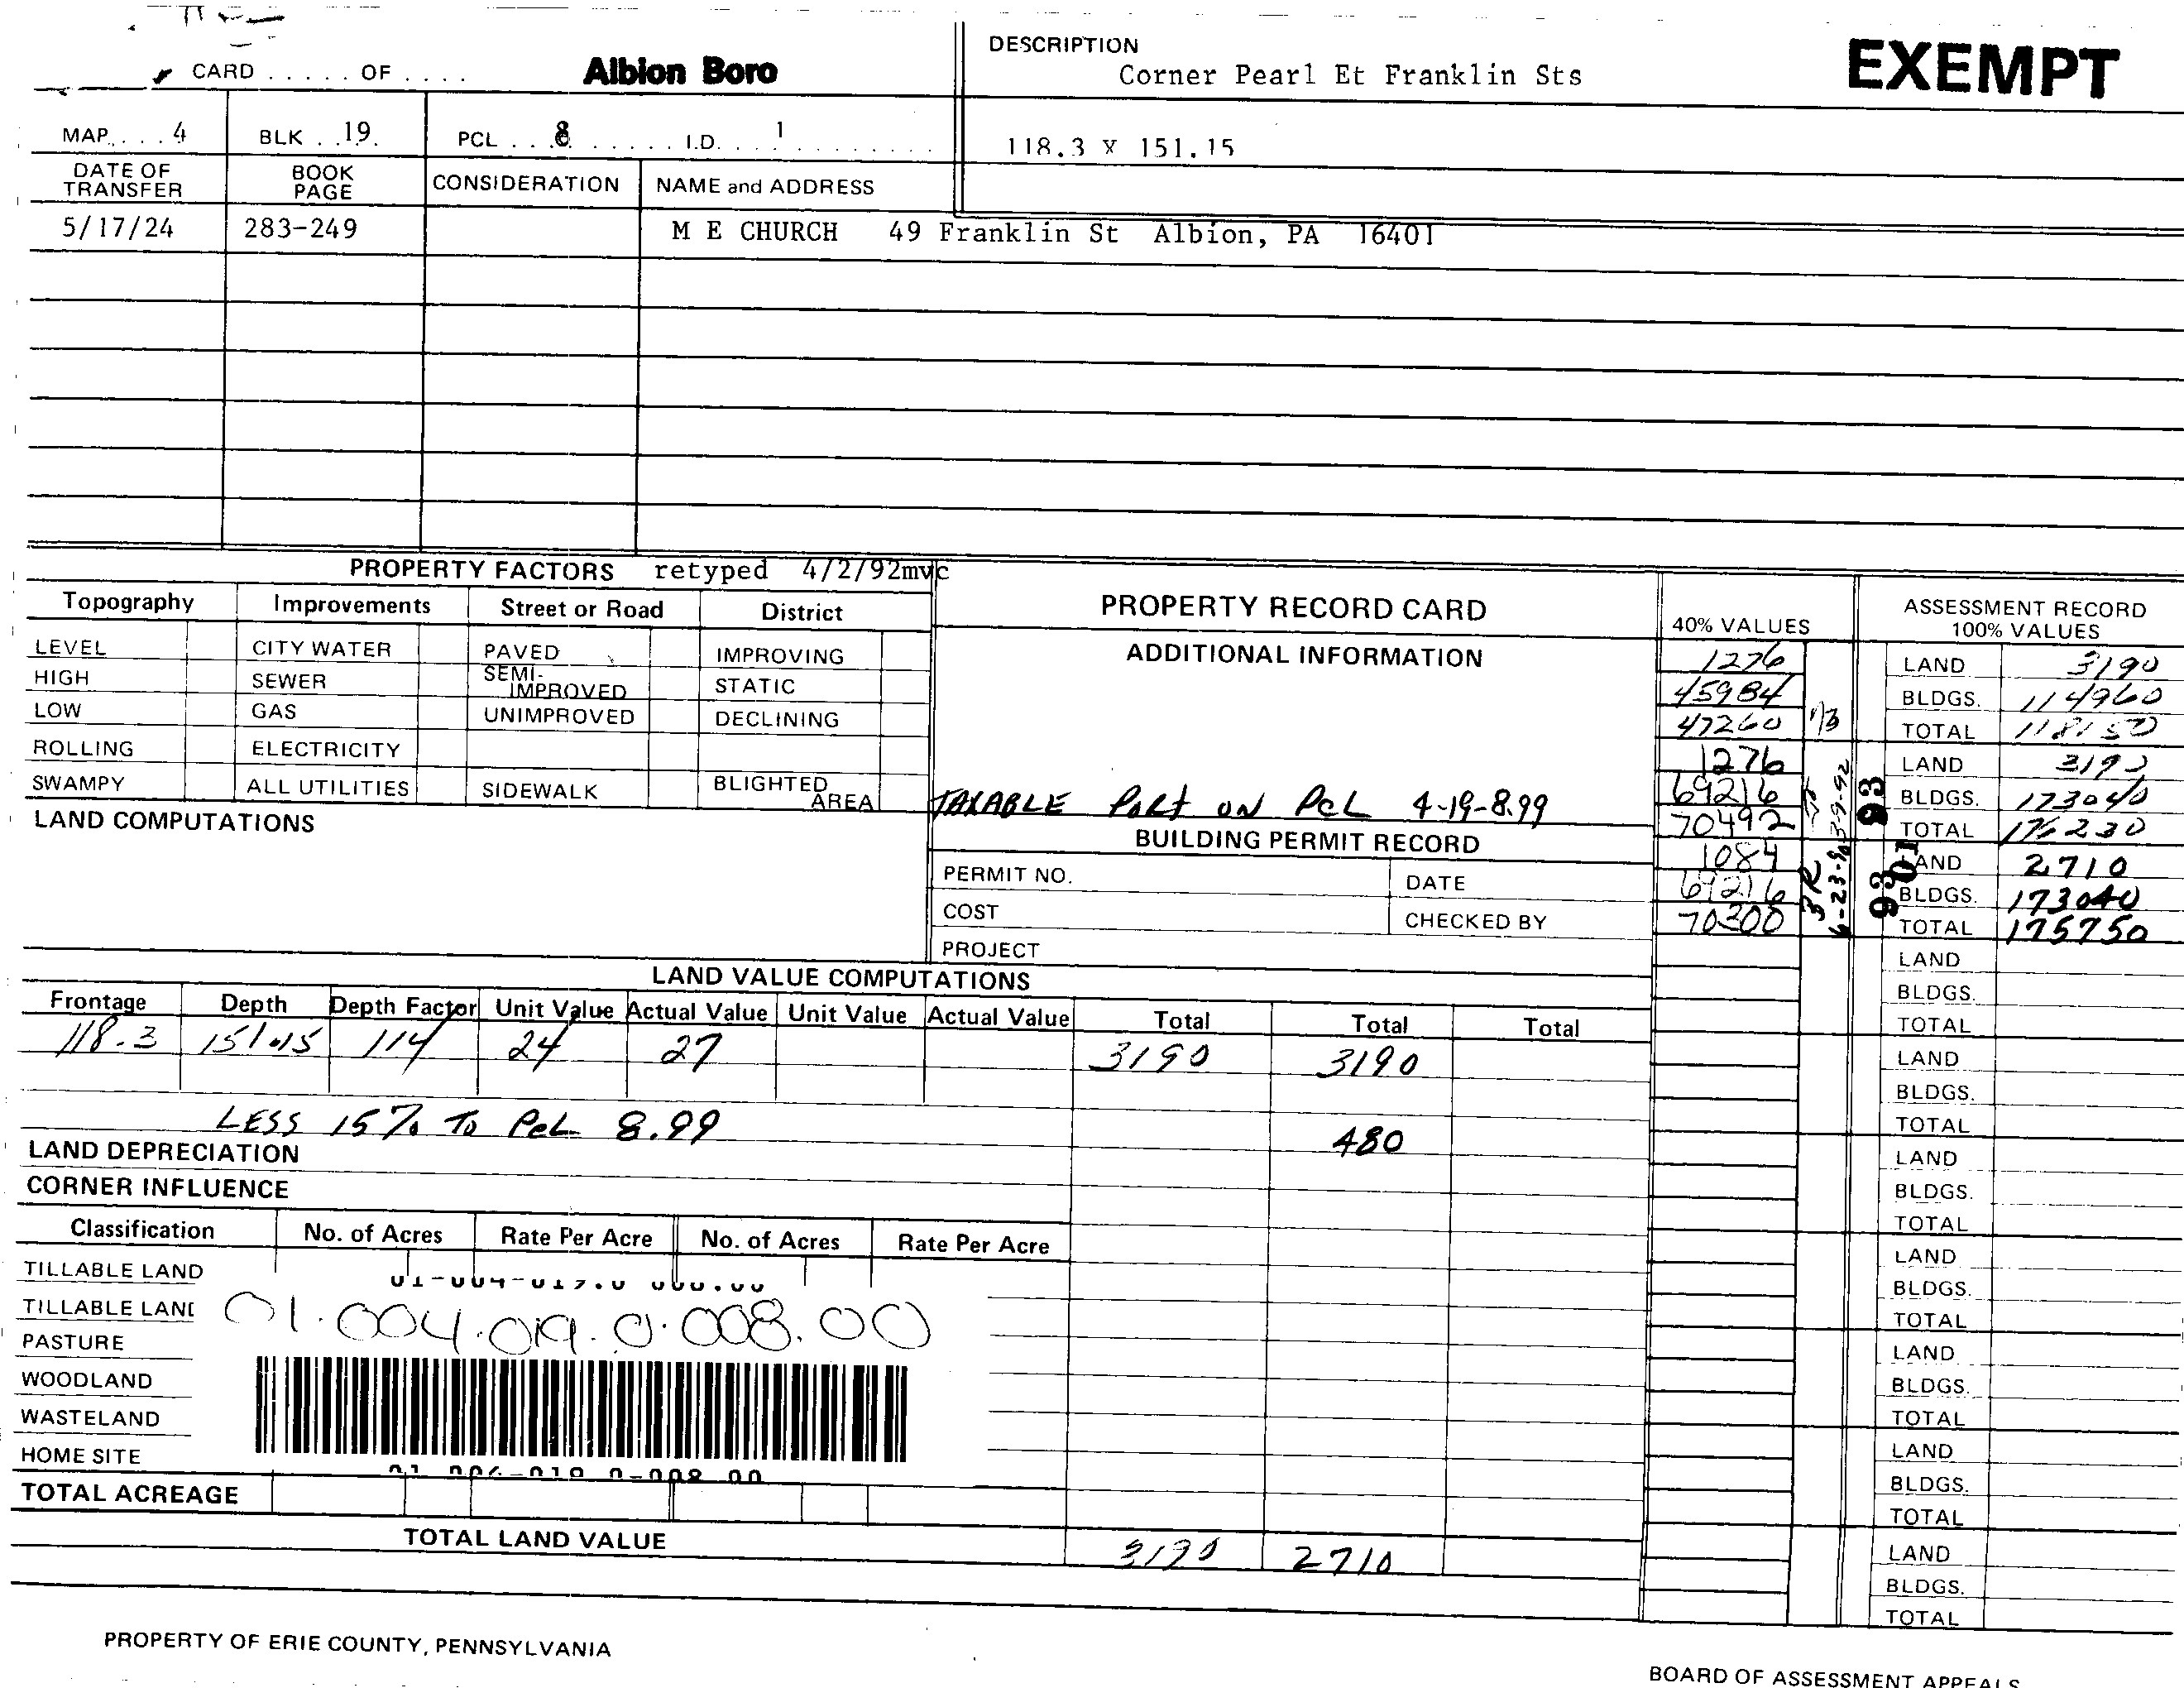 CARD ..... OF .... Albion Boro
DESCRIPTION
Corner Pearl Et Franklin Sts
EXEMPT
MAP.... 4 BLK . .19. PCL . . .8. . . . . . I.D. 1
118.3 x 151.15
DATE OF TRANSFER BOOK PAGE CONSIDERATION NAME and ADDRESS
5/17/24 283-249 M E CHURCH 49 Franklin St Albion, PA 16401
PROPERTY FACTORS retyped 4/2/92mvc
Topography Improvements Street or Road District
LEVEL CITY WATER PAVED IMPROVING
HIGH SEWER SEMI-IMPROVED STATIC
LOW GAS UNIMPROVED DECLINING
ROLLING ELECTRICITY
SWAMPY ALL UTILITIES SIDEWALK BLIGHTED AREA
LAND COMPUTATIONS
PROPERTY RECORD CARD
ADDITIONAL INFORMATION
TAXABLE PART ON PCL 4-19-8.99
BUILDING PERMIT RECORD
PERMIT NO. DATE
COST CHECKED BY
PROJECT
40% VALUES
ASSESSMENT RECORD
100% VALUES
1276 LAND 3190
45984 BLDGS. 114960
47260 TOTAL 118150
1276 LAND 3190
69216 93 BLDGS. 173040
70492 3-9-92 TOTAL 176230
1084 LAND 2710
69216 93 01 BLDGS. 173040
70300 TOTAL 175750
LAND
BLDGS.
TOTAL
LAND
BLDGS.
TOTAL
LAND
BLDGS.
TOTAL
LAND
BLDGS.
TOTAL
LAND
BLDGS.
TOTAL
LAND
BLDGS.
TOTAL
LAND
BLDGS.
TOTAL
LAND VALUE COMPUTATIONS
Frontage Depth Depth Factor Unit Value Actual Value Unit Value Actual Value Total Total Total
118.3 151.15 114 24 27 3190 3190
LESS 15% TO PCL 8.99 480
LAND DEPRECIATION
CORNER INFLUENCE
Classification No. of Acres Rate Per Acre No. of Acres Rate Per Acre
TILLABLE LAND
TILLABLE LAND
01.004.019.0.008.00
PASTURE
WOODLAND
WASTELAND
HOME SITE
TOTAL ACREAGE
TOTAL LAND VALUE 3190 2710
PROPERTY OF ERIE COUNTY, PENNSYLVANIA
BOARD OF ASSESSMENT APPEALS